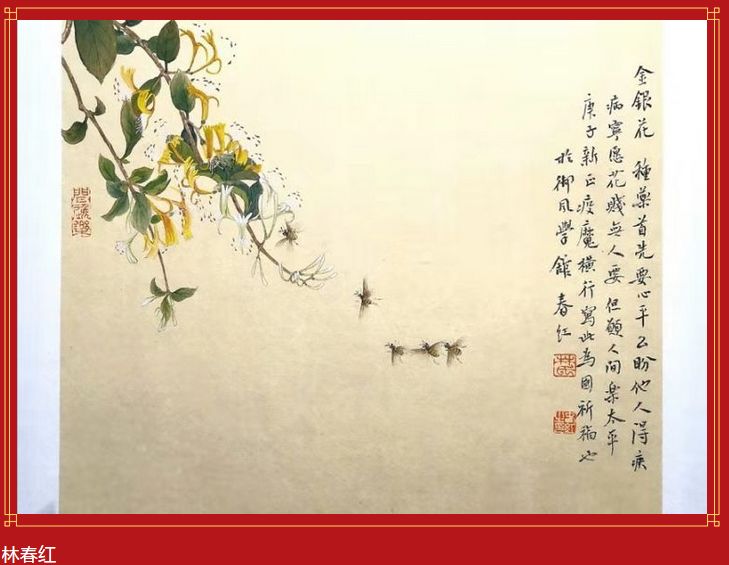 金銀花 種藥首先要心平 盼他人得疾
病寧愿花賤無人要 但願人間樂太平
庚子新正疫魔橫行寫此為國祈福也
於御風學館 春红
林春红